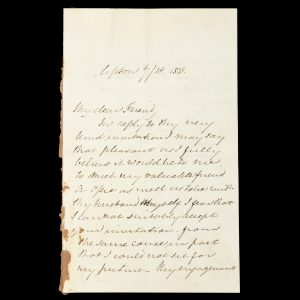 My dear Friend,
In reply to thy very
kind invitation I may say
that pleasant as I fully
believe it would be to me
to meet my valuable friend
as well as
thy husband thyself I fear that
I can not suitably accept
your invitation from
the same cause in part
that I could not sit for
my picture - My engagements